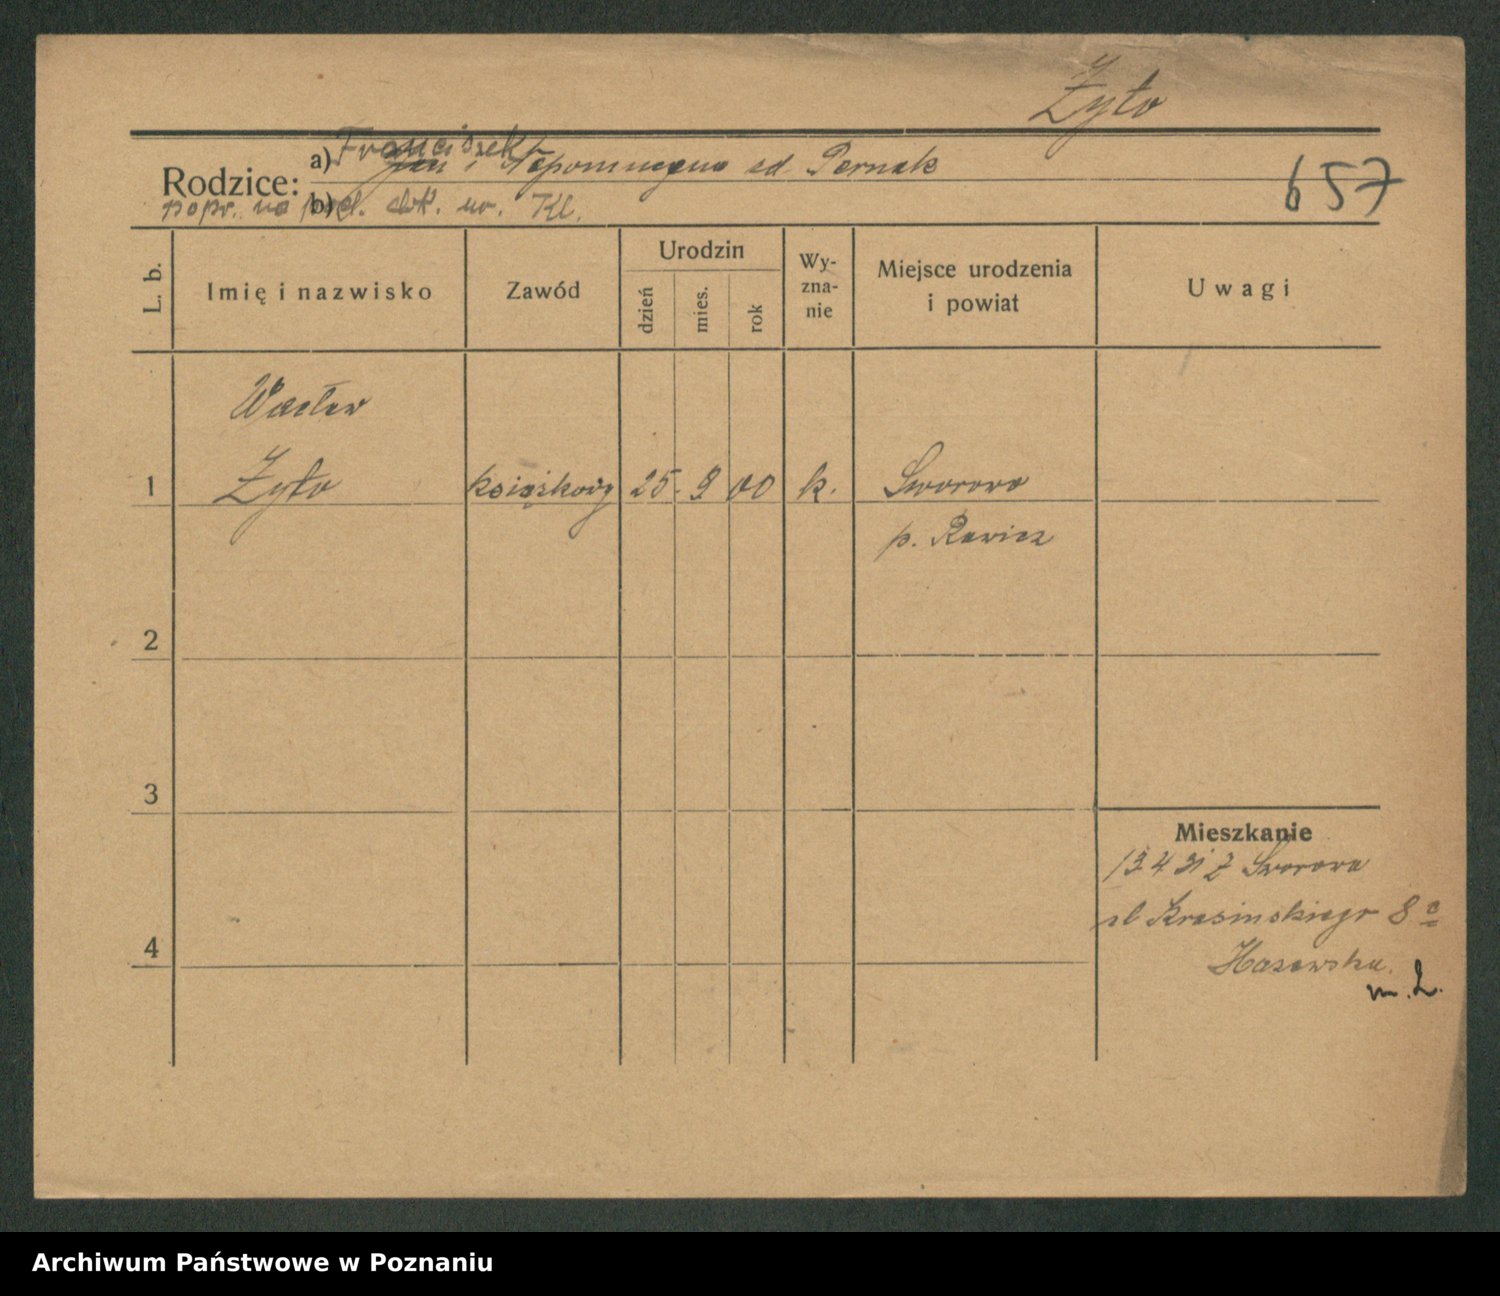 Żyto
Rodzice: a) Franciszek Jan i Nepomucyna od Pernak
b)
popr. na pod. dok. ur. Kl.
657
L. b.
Imię i nazwisko
Zawód
Urodzin
dzień
mies.
rok
Wy-
zna-
nie
Miejsce urodzenia
i powiat
Uwagi
Wacław
1 Żyto książkowy 25. 9 00 k. Sworowo
p. Rawicz
2
3
Mieszkanie
13 4 31 z Sworowa
ul Krasińskiego 8
4
m. 2.
Archiwum Państwowe w Poznaniu